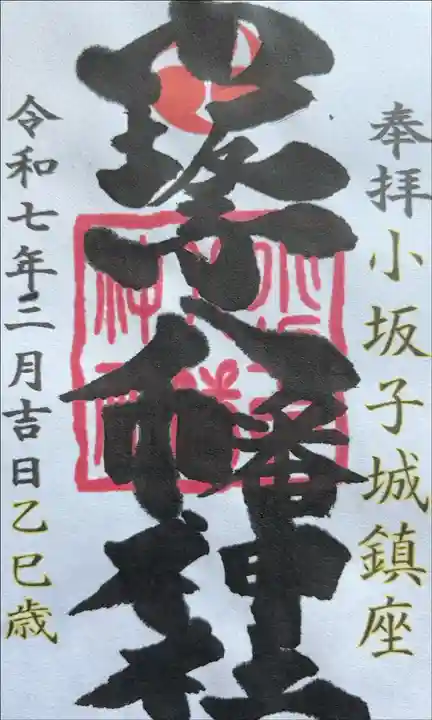 奉拝小坂子城鎮座
八幡神社
令和七年二月吉日乙巳歳